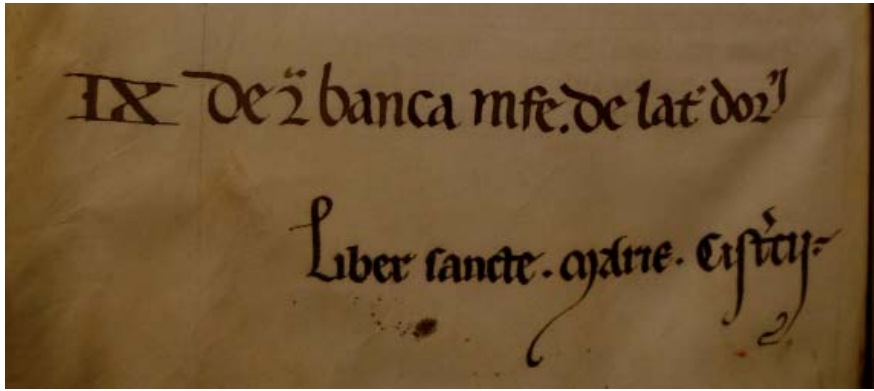 IX de 2ª banca infe. de lat' dor'
Liber sancte . marie . Cist'cij